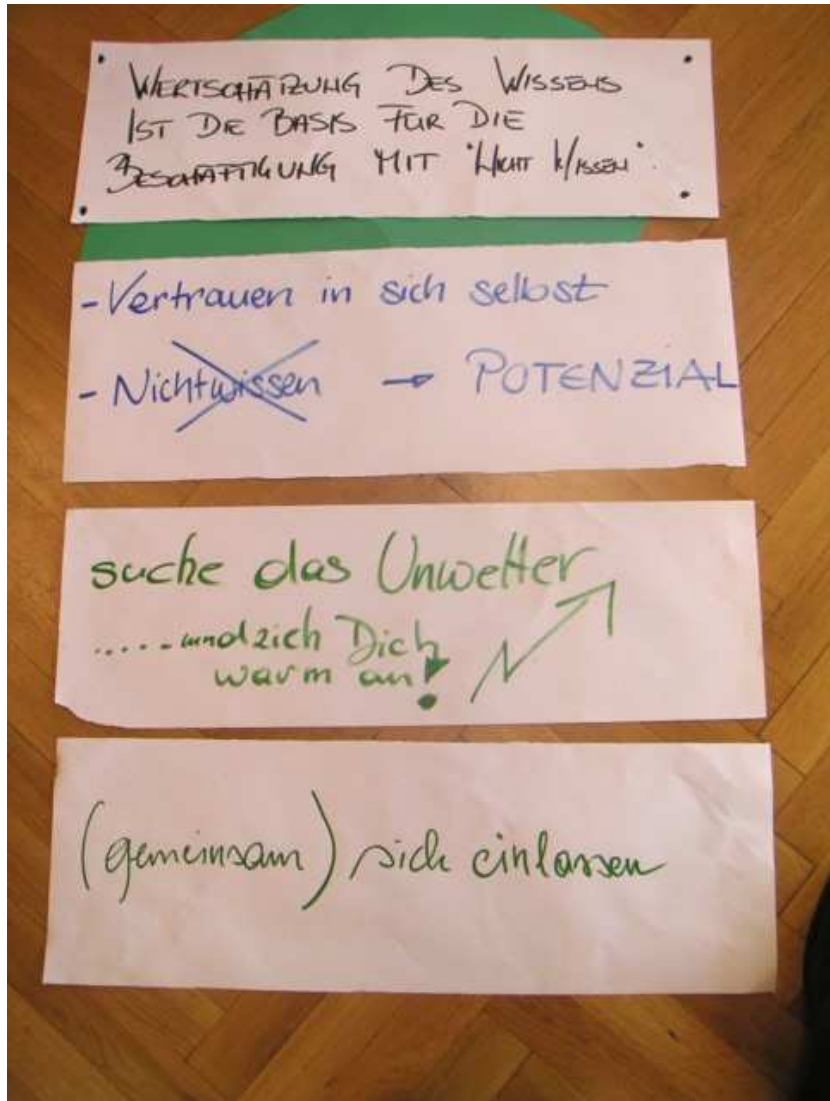 WERTSCHÄTZUNG DES WISSENS
IST DIE BASIS FÜR DIE
BESCHÄFTIGUNG MIT "NICHT WISSEN".
- Vertrauen in sich selbst
- Nichtwissen → POTENZIAL
suche das Unwetter
..... und zieh Dich
warm an!
(gemeinsam) sich einlassen